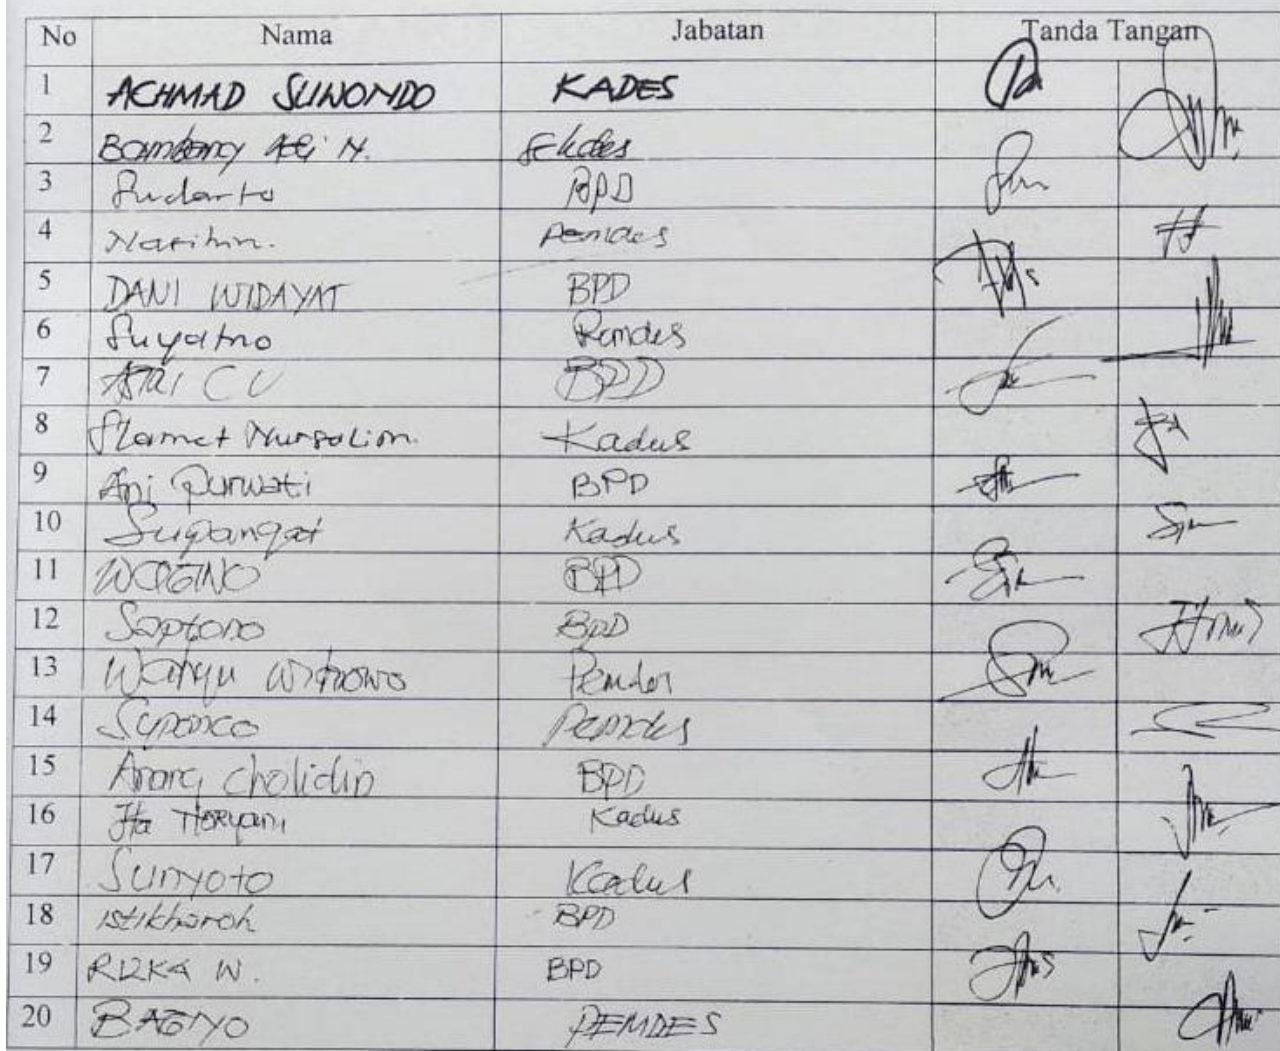 No Nama Jabatan Tanda Tangan
1 ACHMAD SUWONDO KADES
2 Bambang N. Sekdes
3 Sudarto BPD
4 Pemdes
5 DANI WIDAYAT BPD
6 Suyatno Pemdes
7 BPD
8 Slamet Nursalim. Kadus
9 Ani Purwati BPD
10 Supangat Kadus
11 BPD
12 Saptono BPD
13 Wahyu Wibowo Pemdes
14 Pemdes
15 Anang Cholidin BPD
16 Ita Haryani Kadus
17 Sunyoto Kadus
18 istikharoh BPD
19 RIZKA W. BPD
20 BAGIYO PEMDES